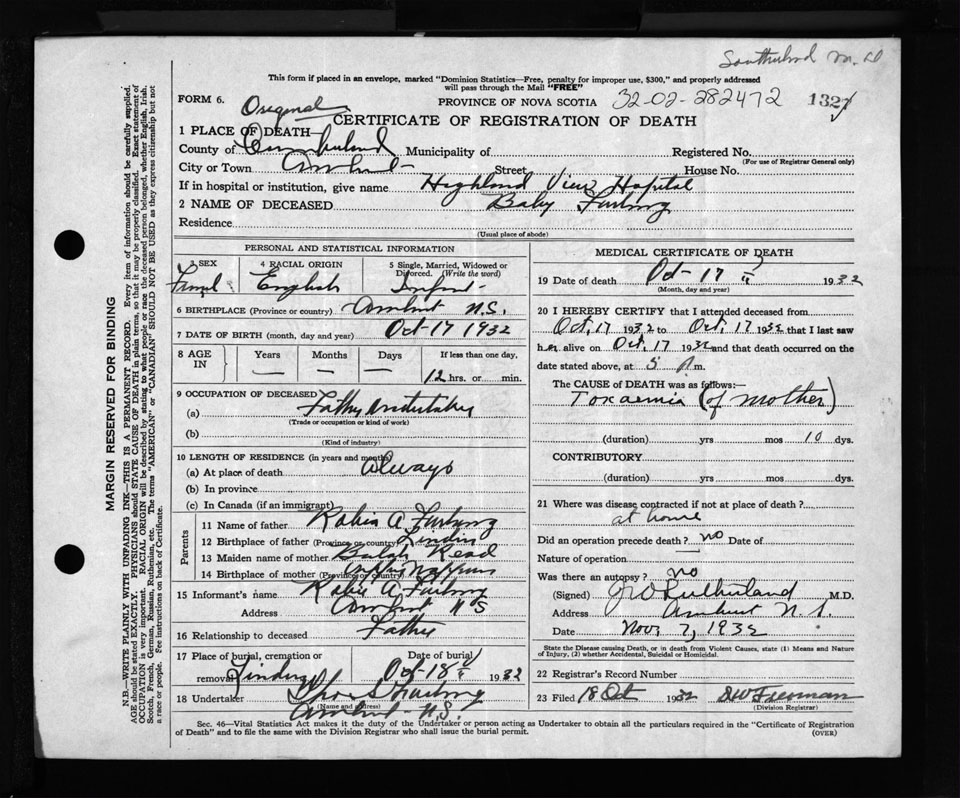 Sutherland M.D
This form if placed in an envelope, marked "Dominion Statistics—Free, penalty for improper use, $300," and properly addressed
will pass through the Mail "FREE"
FORM 6. Original
PROVINCE OF NOVA SCOTIA 32-02-282472 132
CERTIFICATE OF REGISTRATION OF DEATH
1 PLACE OF DEATH
County of Cumberland Municipality of Registered No.
(For use of Registrar General only)
City or Town Amherst Street House No.
If in hospital or institution, give name Highland View Hospital
2 NAME OF DECEASED Baby Furlong
Residence
(Usual place of abode)
MARGIN RESERVED FOR BINDING
N.B.—WRITE PLAINLY WITH UNFADING INK—THIS IS A PERMANENT RECORD. Every item of information should be carefully supplied.
AGE should be stated EXACTLY. PHYSICIANS should STATE CAUSE OF DEATH in plain terms, so that it may be properly classified. Exact statement of
OCCUPATION is very important. RACIAL ORIGIN will be described by stating to what people or race the deceased person belonged, whether English, Irish,
Scotch, French, German, Russian, Ruthenian, etc. The terms "AMERICAN" or "CANADIAN" SHOULD NOT BE USED as they express citizenship but not
a race or people. Fee instructions on back of Certificate.
PERSONAL AND STATISTICAL INFORMATION
3 SEX 4 RACIAL ORIGIN 5 Single, Married, Widowed or
Divorced. (Write the word)
English Infant
6 BIRTHPLACE (Province or country) Amherst N.S.
7 DATE OF BIRTH (month, day and year) Oct-17 1932
8 AGE IN Years Months Days If less than one day,
— — — 12 hrs. or min.
9 OCCUPATION OF DECEASED
(a) Father Undertaker
(Trade or occupation or kind of work)
(b)
(Kind of industry)
10 LENGTH OF RESIDENCE (in years and months)
(a) At place of death Always
(b) In province
(c) In Canada (if an immigrant)
Parents
11 Name of father A. Furlong
12 Birthplace of father (Province or country) Linden
13 Maiden name of mother Bulah Read
14 Birthplace of mother (Province or country)
15 Informant's name A Furlong
Address Amherst N S
16 Relationship to deceased Father
17 Place of burial, cremation or
removal Linden Date of burial Oct-18 1932
18 Undertaker Furlong
(Name and address)
Amherst - N.S.
MEDICAL CERTIFICATE OF DEATH
19 Date of death Oct-17 1932
(Month, day and year)
20 I HEREBY CERTIFY that I attended deceased from
Oct, 17 1932 to Oct, 17 1932 that I last saw
h alive on Oct, 17 1932 and that death occurred on the
date stated above, at 5 P m.
The CAUSE OF DEATH was as follows:—
Toxaemia (of mother)
(duration) yrs mos 10 dys.
CONTRIBUTORY
(duration) yrs mos dys.
21 Where was disease contracted if not at place of death?
at home
Did an operation precede death? no Date of
Nature of operation
Was there an autopsy? no
(Signed) Sutherland M.D.
Address Amherst N.S.
Date Nov. 7, 1932
State the Disease causing Death, or in death from Violent Causes, state (1) Means and Nature
of Injury, (2) whether Accidental, Suicidal or Homicidal.
22 Registrar's Record Number
23 Filed 18 Oct 1932 Freeman
(Division Registrar)
Sec. 46—Vital Statistics Act makes it the duty of the Undertaker or person acting as Undertaker to obtain all the particulars required in the "Certificate of Registration
of Death" and to file the same with the Division Registrar who shall issue the burial permit. (OVER)